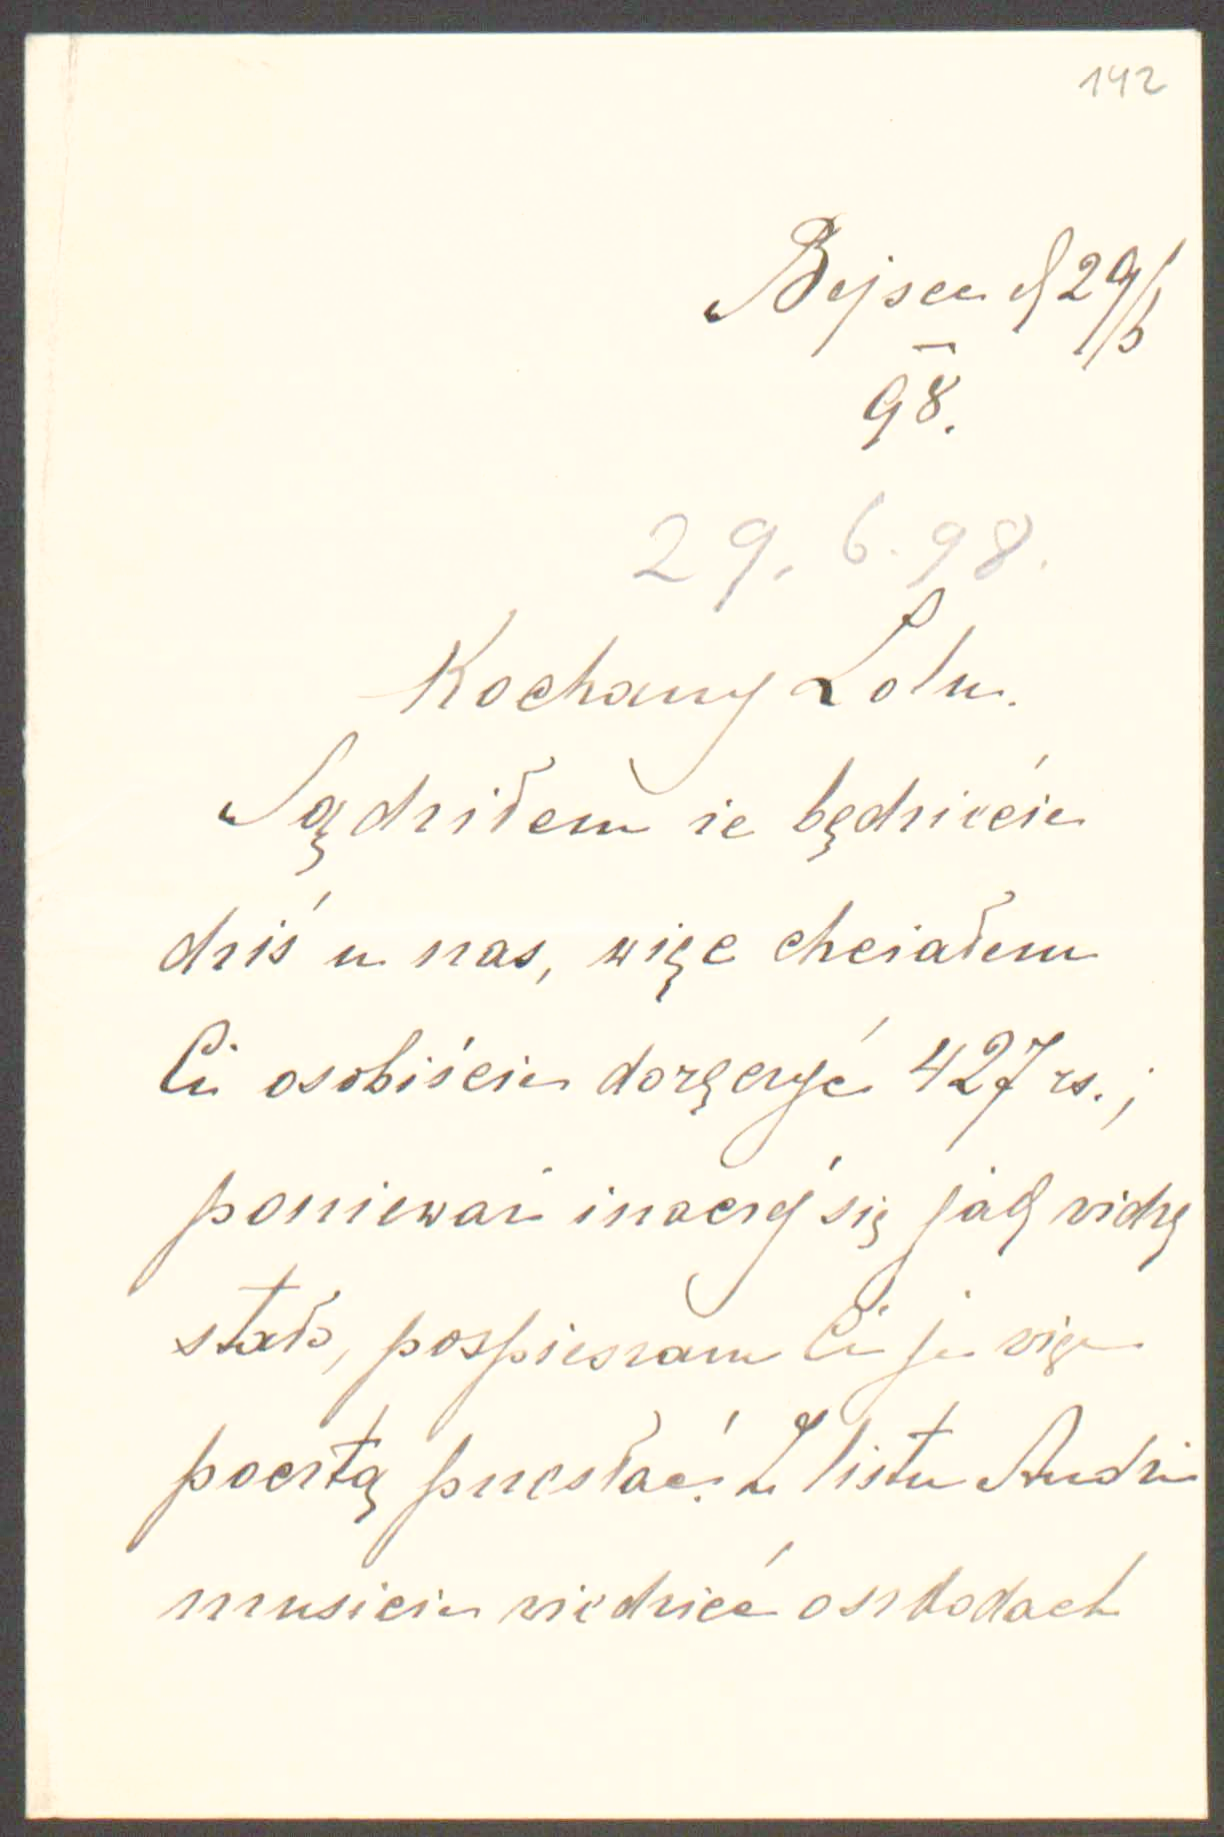 142
Bejsce d 29/6
98.
29. 6. 98.
Kochany Lolu.
Sądziłem że będziecie
dziś u nas, więc chciałem
Ci osobiście doręczyć 427 rs.;
ponieważ inaczej się jak widzę
stało, pospieszam Ci je więc
pocztą przesłać. Z listu Andzi
musicie wiedzieć o szkodach